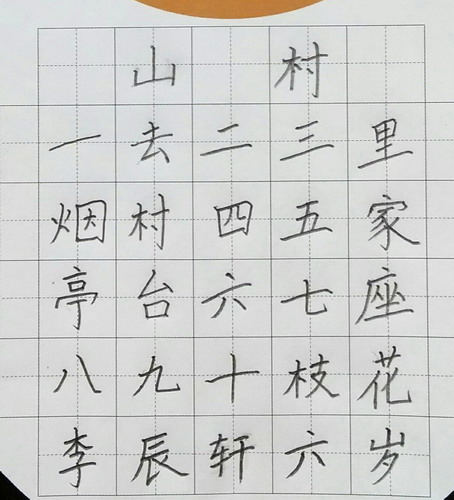 山村
一去二三里
烟村四五家
亭台六七座
八九十枝花
李辰轩六岁